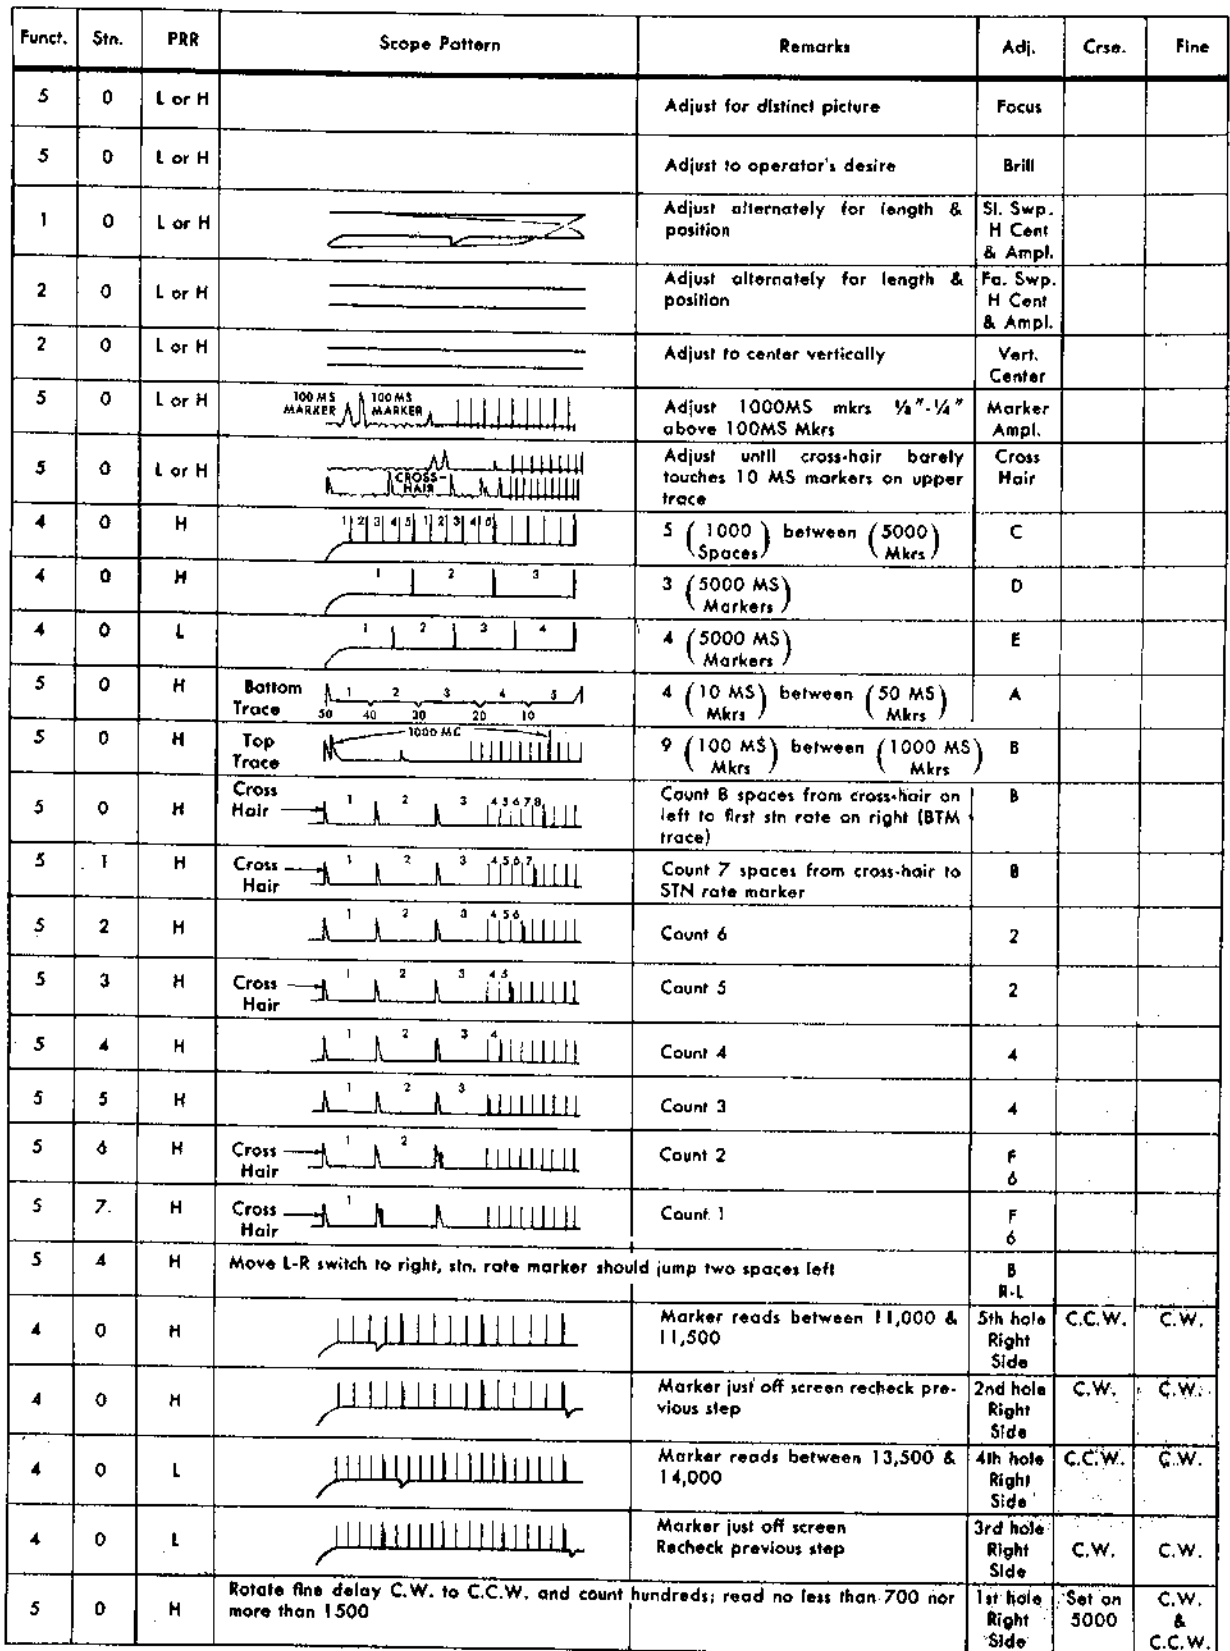 Funct. Stn. PRR Scope Pattern Remarks Adj. Crse. Fine
5 0 L or H Adjust for distinct picture Focus
5 0 L or H Adjust to operator's desire Brill
1 0 L or H Adjust alternately for length & position Sl. Swp. H Cent & Ampl.
2 0 L or H Adjust alternately for length & position Fa. Swp. H Cent & Ampl.
2 0 L or H Adjust to center vertically Vert. Center
5 0 L or H 100 MS MARKER 100 MS MARKER Adjust 1000MS mkrs 1/8"-1/4" above 100MS Mkrs Marker Ampl.
5 0 L or H CROSS-HAIR Adjust until cross-hair barely touches 10 MS markers on upper trace Cross Hair
4 0 H 1 2 3 4 5 1 2 3 4 5 5 (1000 Spaces) between (5000 Mkrs) C
4 0 H 1 2 3 3 (5000 MS Markers) D
4 0 L 1 2 3 4 4 (5000 MS Markers) E
5 0 H Bottom Trace 1 2 3 4 5 50 40 30 20 10 4 (10 MS Mkrs) between (50 MS Mkrs) A
5 0 H Top Trace 1000 MC 9 (100 MS Mkrs) between (1000 MS Mkrs) B
5 0 H Cross Hair 1 2 3 4 5 6 7 8 Count 8 spaces from cross-hair on left to first stn rate on right (BTM trace) B
5 1 H Cross Hair 1 2 3 4 5 6 7 Count 7 spaces from cross-hair to STN rate marker B
5 2 H 1 2 3 4 5 6 Count 6 2
5 3 H Cross Hair 1 2 3 4 5 Count 5 2
5 4 H 1 2 3 4 Count 4 4
5 5 H 1 2 3 Count 3 4
5 6 H Cross Hair 1 2 Count 2 F 6
5 7. H Cross Hair 1 Count 1 F 6
5 4 H Move L-R switch to right, stn. rate marker should jump two spaces left B R-L
4 0 H Marker reads between 11,000 & 11,500 5th hole Right Side C.C.W. C.W.
4 0 H Marker just off screen recheck previous step 2nd hole Right Side C.W. C.W.
4 0 L Marker reads between 13,500 & 14,000 4th hole Right Side C.C.W. C.W.
4 0 L Marker just off screen Recheck previous step 3rd hole Right Side C.W. C.W.
5 0 H Rotate fine delay C.W. to C.C.W. and count hundreds; read no less than 700 nor more than 1500 1st hole Right Side Set on 5000 C.W. & C.C.W.